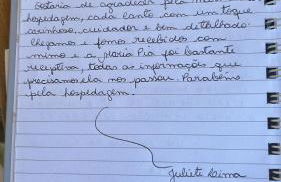 Gostaria de agradecer pela
hospedagem, cada canto com um toque
carinhoso, cuidador e bem detalhado.
Chegamos e fomos recebidos com
mimo e a Maria Pia foi bastante
receptiva, todas as informações que
precisamos ela nos passou. Parabéns
pela hospedagem.
Juliete Lima